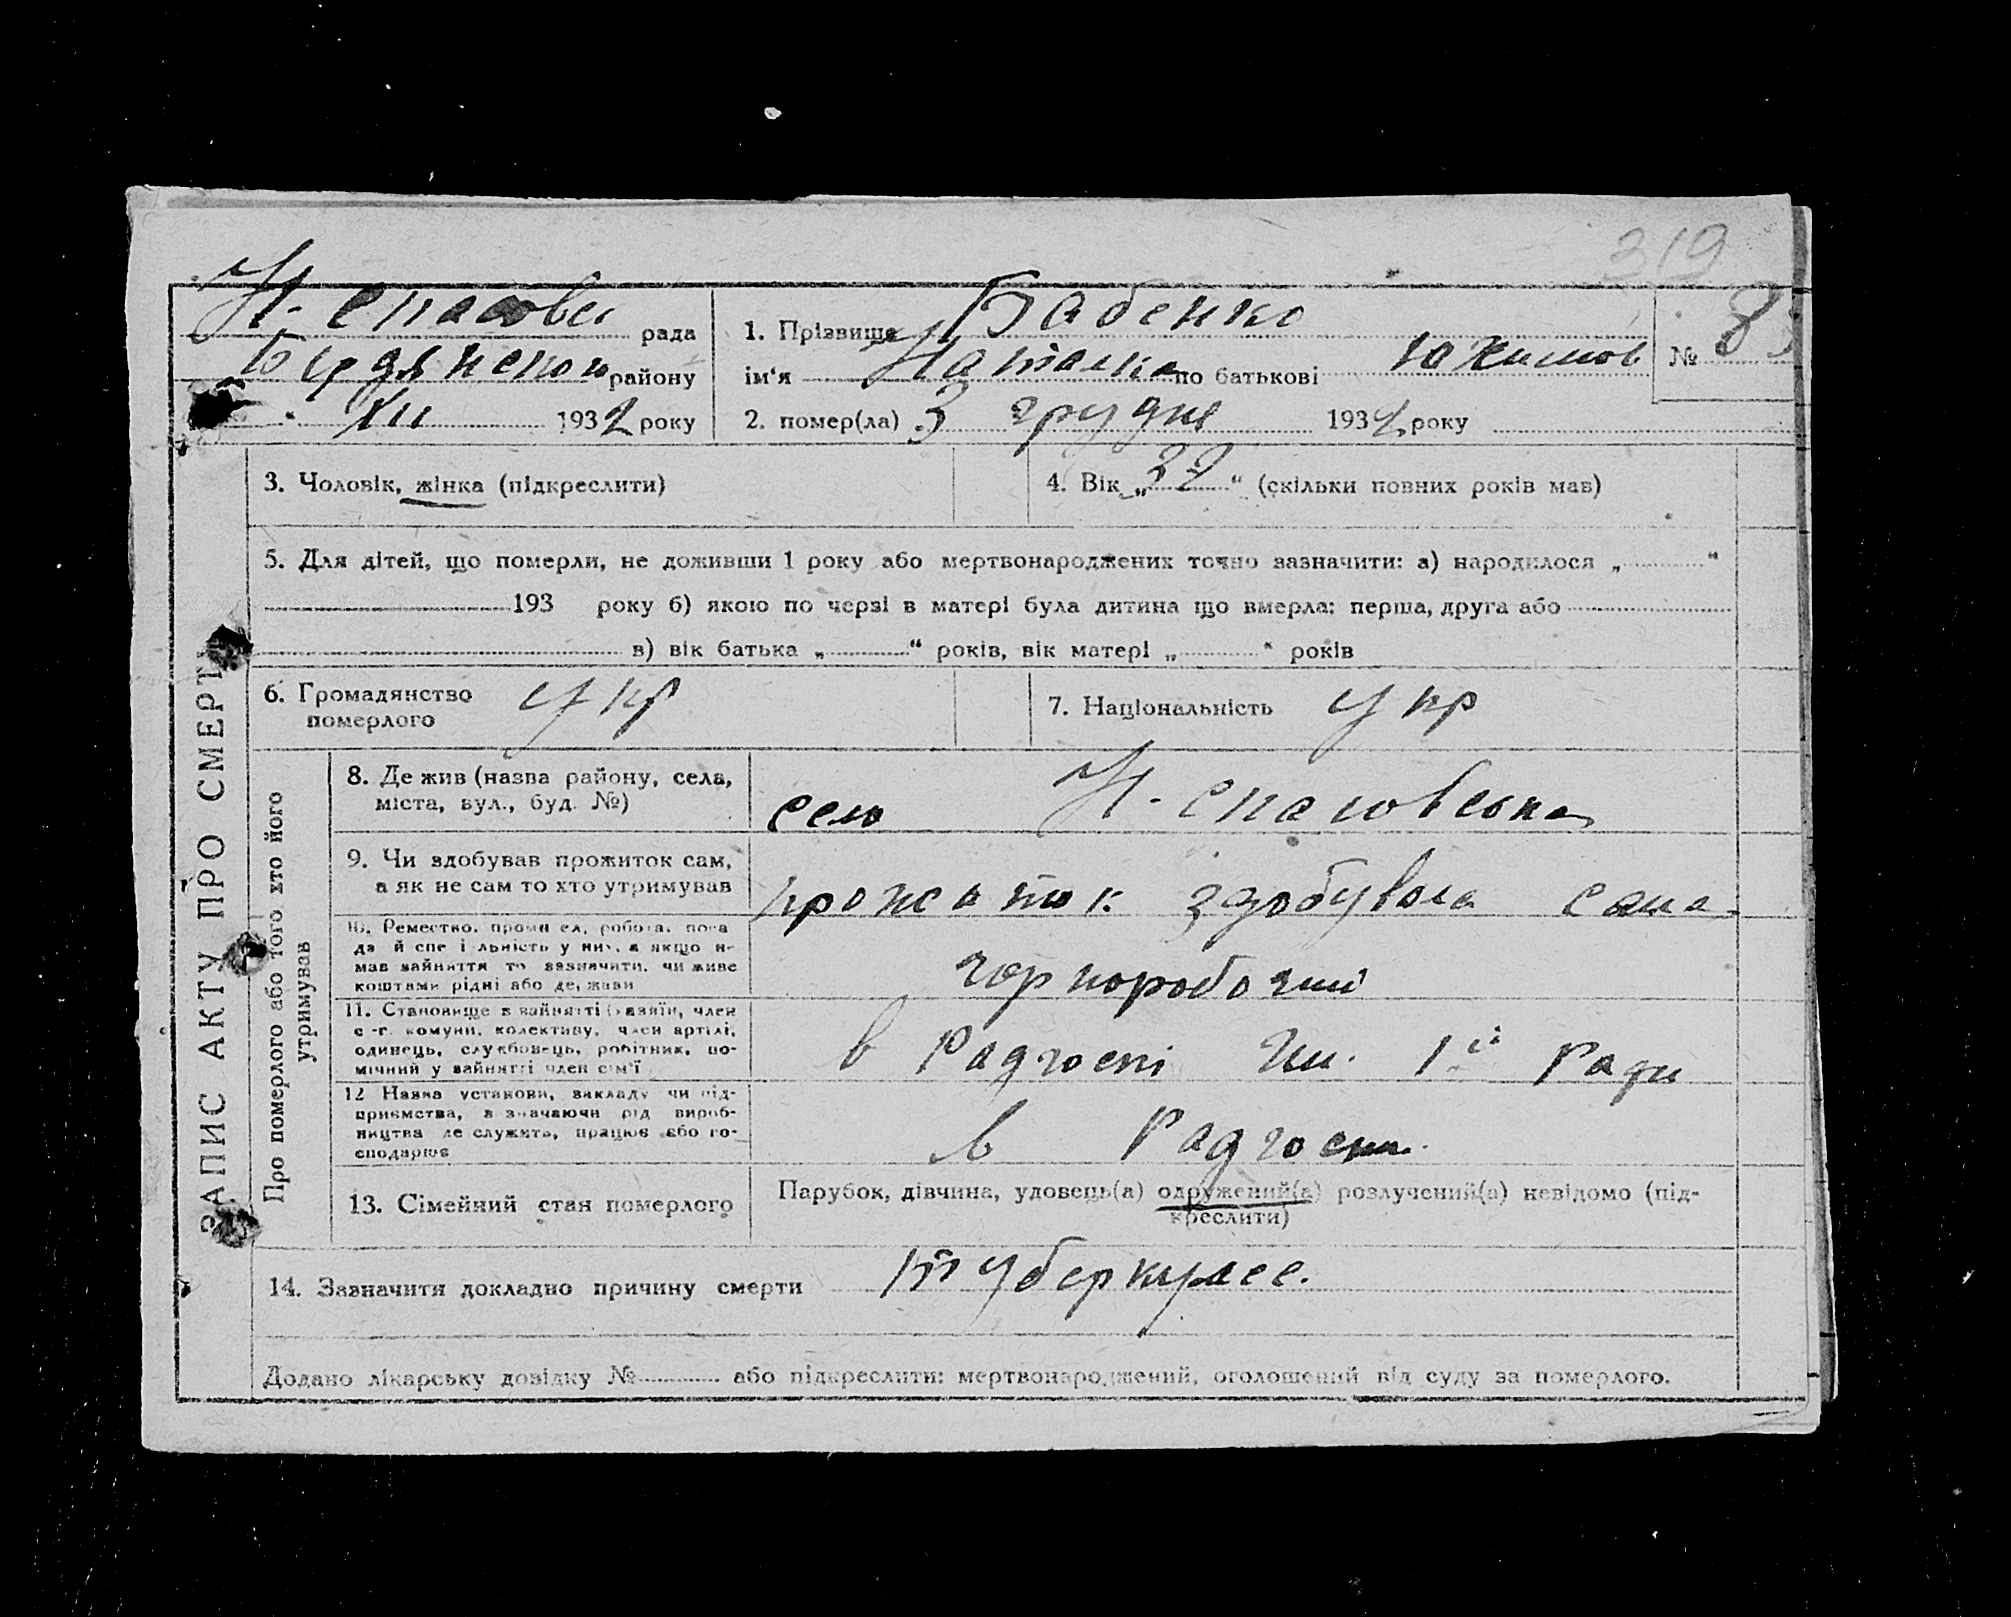 319
Н. Спасовс рада
Бердянсько району
XII 1932 року
1. Прізвище Бабенко
ім'я Наталка по батькові Юхимов
№ 83
2. помер(ла) 3 грудня 1932 року
3. Чоловік, жінка (підкреслити)
4. Вік „32“ (скільки повних років мав)
5. Для дітей, що померли, не доживши 1 року або мертвонароджених точно зазначити: а) народилося „ “
193 року б) якою по черзі в матері була дитина що вмерла: перша, друга або
в) вік батька „ “ років, вік матері „ “ років
6. Громадянство
померлого укр
7. Національність укр
ЗАПИС АКТУ ПРО СМЕРТЬ
Про померлого або того хто його
утримував
8. Де жив (назва району, села,
міста, вул., буд. №)
село Н. Спасовська
9. Чи здобував прожиток сам,
а як не сам то хто утримував
прожиток здобувала сама
10. Ремество, промисел, робота, поса
да й спеціяльність у них, а якщо н-
мав зайняття то зазначити, чи живе
коштами рідні або держави
чорноробочий
11. Становище в зайнятті (хазяїн, член
с.-г. комуни, колективу, член артілі,
одинець, службовець, робітник, по-
мічний у зайнятті член сім'ї
в Радгоспі Чи. 1й Ради
12 Назва установи, закладу чи під-
приємства, зазначаючи рід вироб-
ництва де служить, працює або го-
сподарює
в Радгоспи.
13. Сімейний стан померлого
Парубок, дівчина, удовець(а) одружений(а) розлучений(а) невідомо (під-
креслити)
14. Зазначити докладно причину смерти туберкульс.
Додано лікарську довідку № або підкреслити: мертвонароджений, оголошений від суду за померлого.